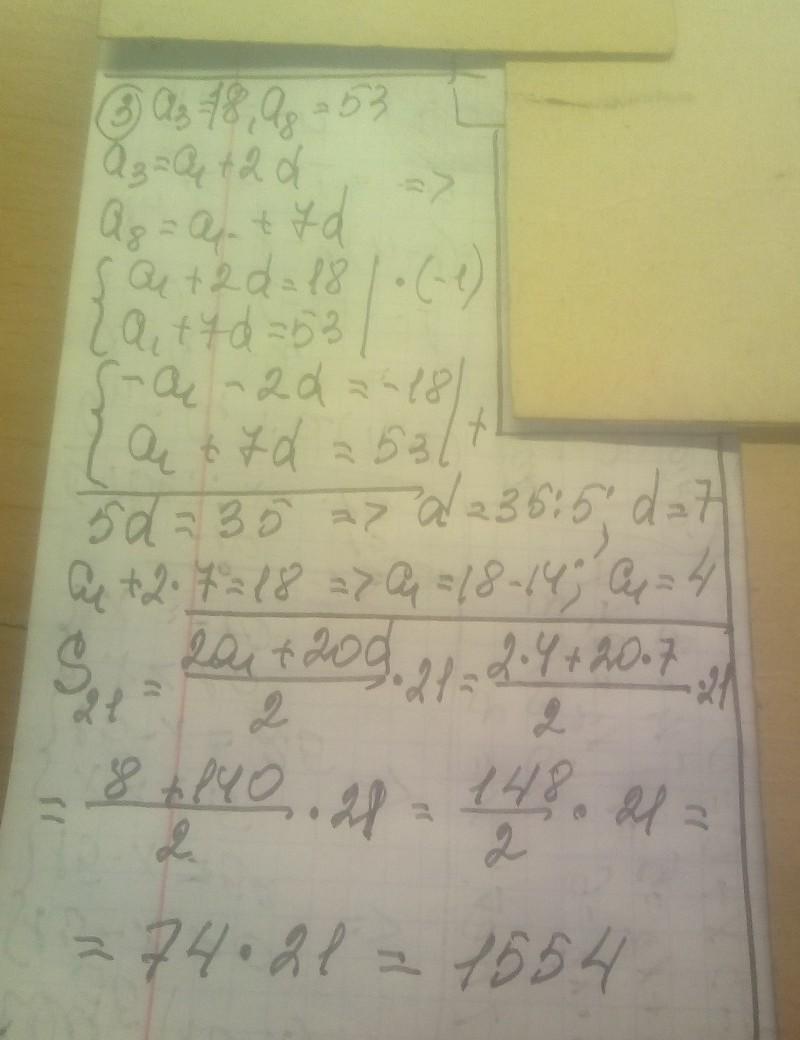 ③ a₃=18, a₈=53
a₃=a₁+2d =>
a₈=a₁+7d
{ a₁+2d=18 | ·(-1)
{ a₁+7d=53 |
{ -a₁-2d=-18 | +
{ a₁+7d=53 |
5d=35 => d=35:5; d=7
a₁+2·7=18 => a₁=18-14; a₁=4
S₂₁ = (2a₁+20d)/2 ·21 = (2·4+20·7)/2 ·21
= (8+140)/2 ·21 = 148/2 · 21 =
= 74·21 = 1554